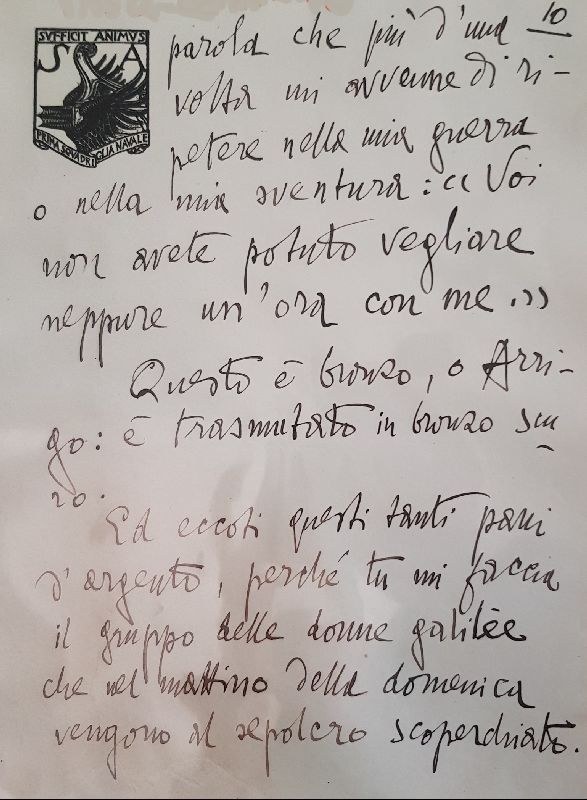 10
SVFFICIT ANIMVS
S A
PRIMA SQVADRIGLIA NAVALE
parola che più d'una
volta mi avvenne di ri-
petere nella mia guerra
o nella mia sventura: « Voi
non avete potuto vegliare
neppure un'ora con me. »
Questo è bronzo, o Arri-
go: è trasmutato in bronzo scu
ro.
Ed eccoti questi tanti pani
d'argento, perché tu mi faccia
il gruppo delle donne galilèe
che nel mattino della domenica
vengono al sepolcro scoperchiato.